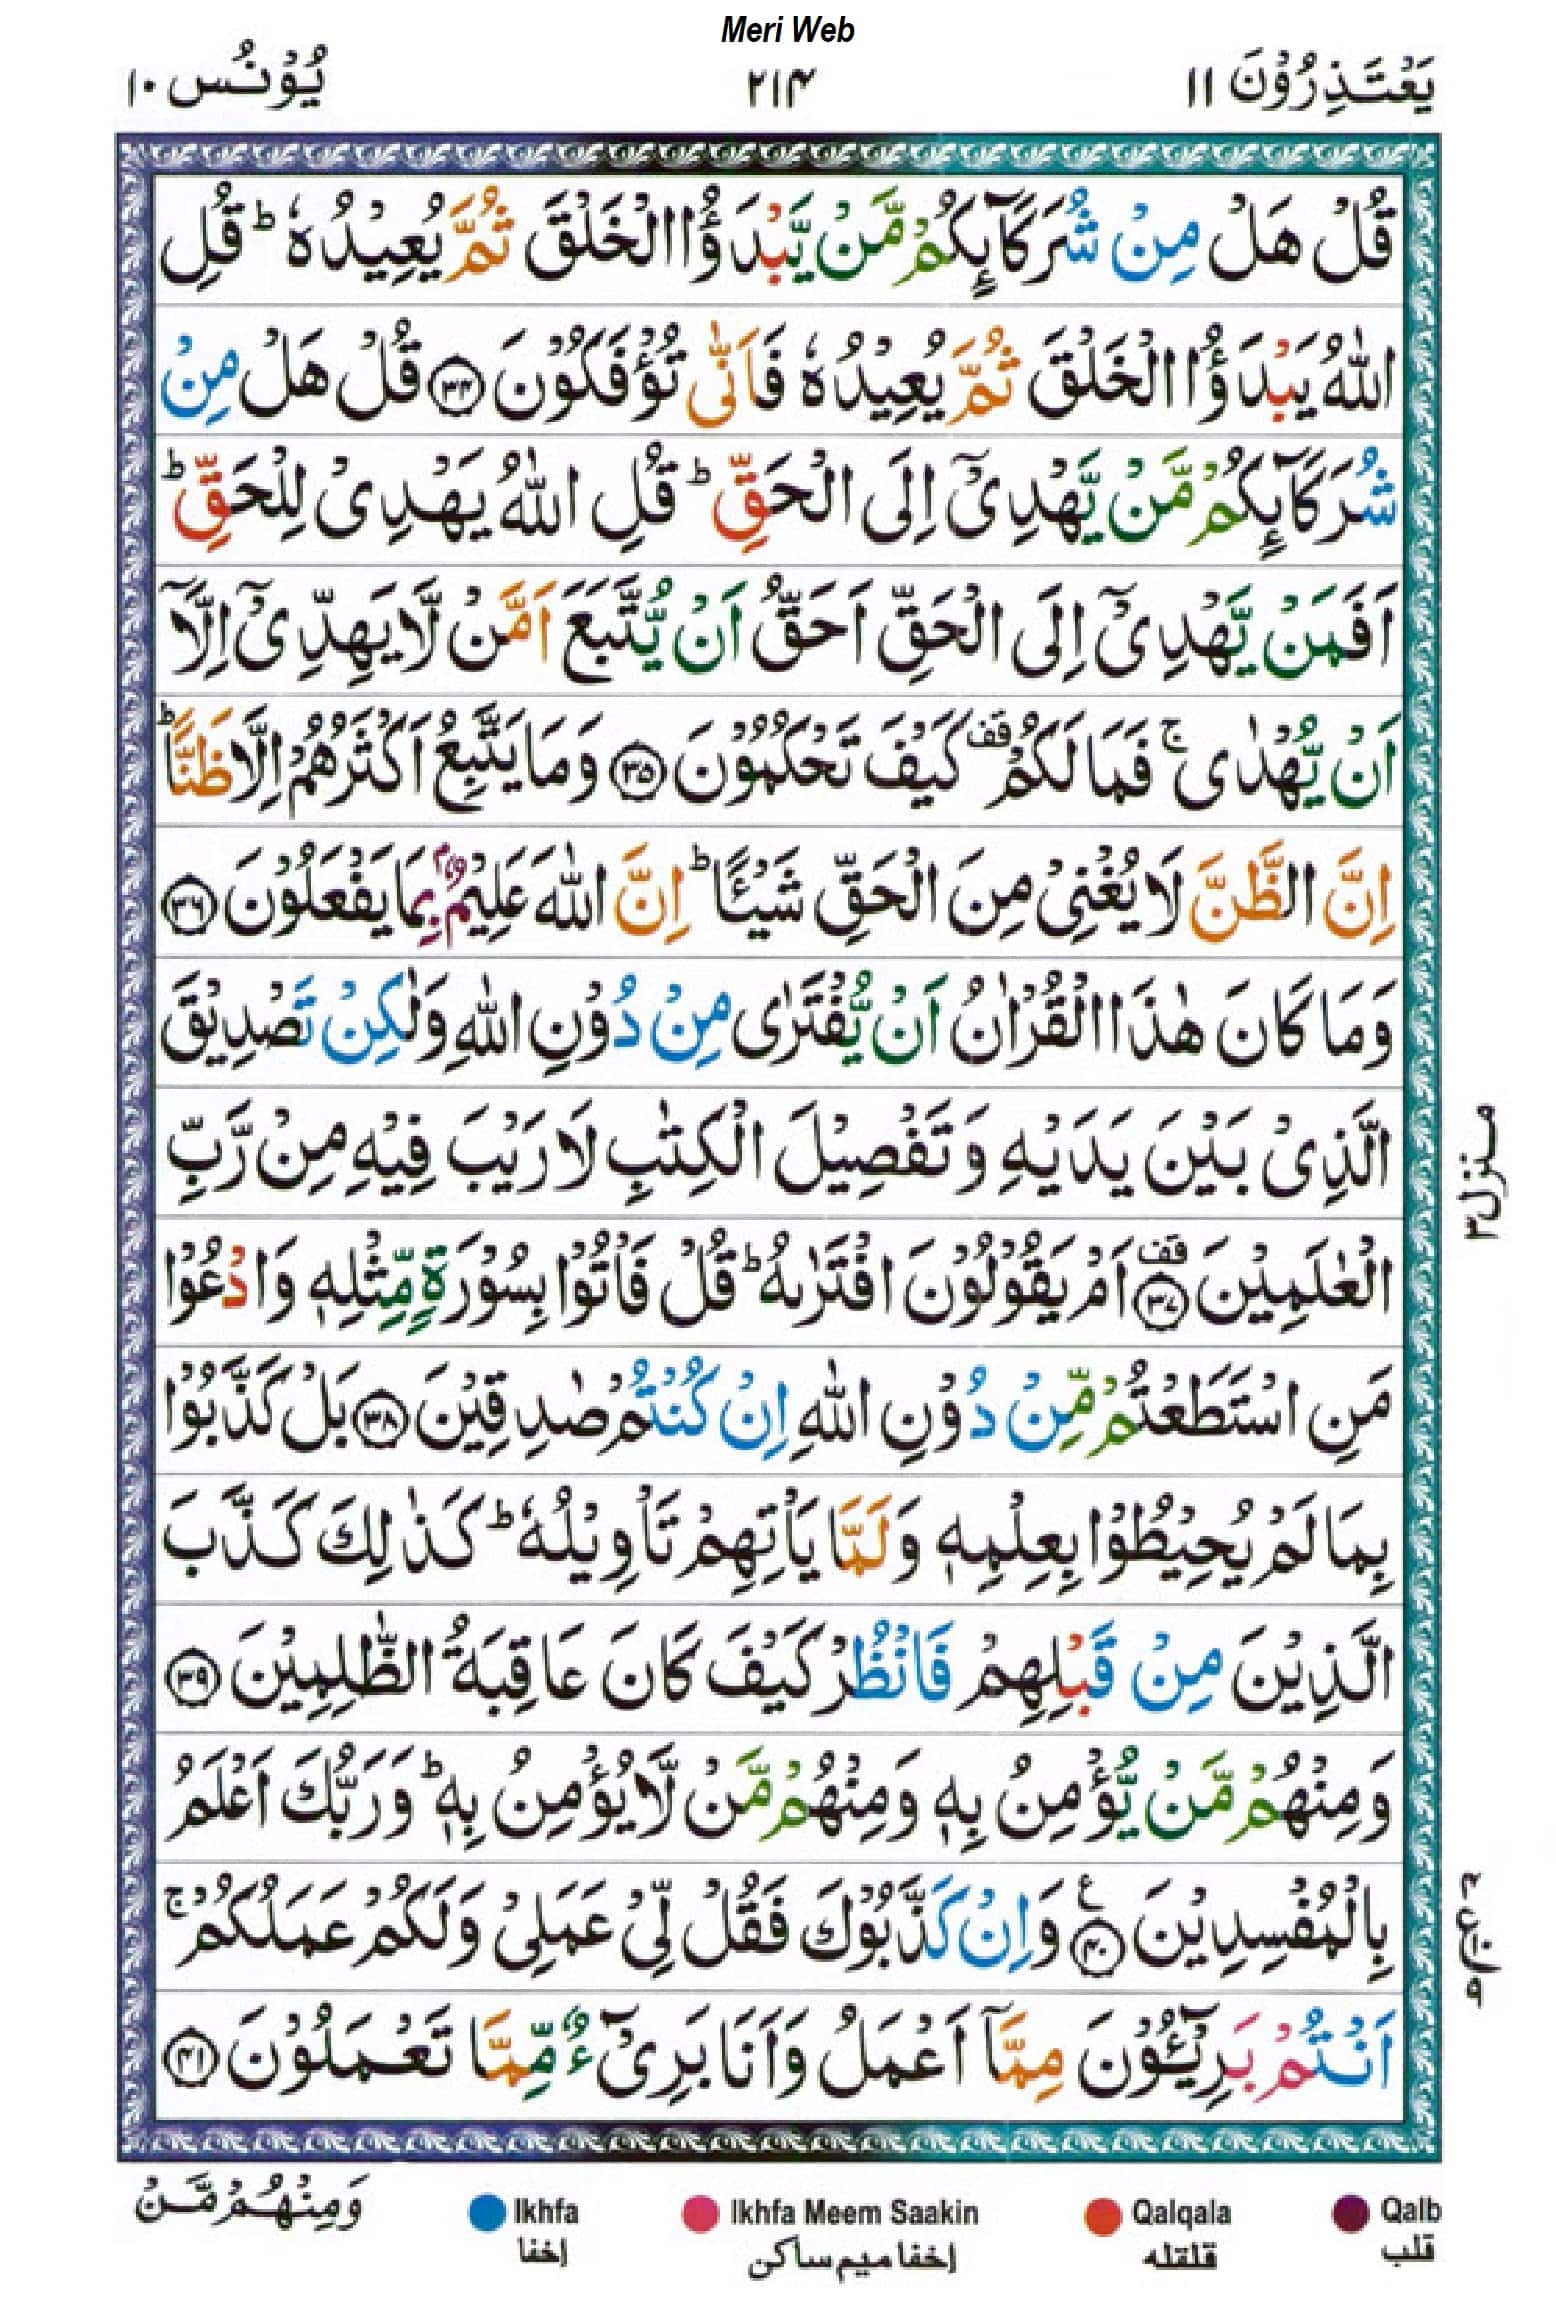 Meri Web
یَعْتَذِرُوْنَ ۱۱
۲۱۴
یُوْنُس ۱۰
قُلْ هَلْ مِنْ شُرَكَآىِٕكُمْ مَّنْ یَّبْدَؤُا الْخَلْقَ ثُمَّ یُعِیْدُهٗ ؕ قُلِ
اللّٰهُ یَبْدَؤُا الْخَلْقَ ثُمَّ یُعِیْدُهٗ فَاَنّٰى تُؤْفَكُوْنَ ۝۳۴ قُلْ هَلْ مِنْ
شُرَكَآىِٕكُمْ مَّنْ یَّهْدِیْۤ اِلَى الْحَقِّ ؕ قُلِ اللّٰهُ یَهْدِیْ لِلْحَقِّ ؕ
اَفَمَنْ یَّهْدِیْۤ اِلَى الْحَقِّ اَحَقُّ اَنْ یُّتَّبَعَ اَمَّنْ لَّا یَهِدِّیْۤ اِلَّاۤ
اَنْ یُّهْدٰى ۚ فَمَا لَكُمْ ۫ كَیْفَ تَحْكُمُوْنَ ۝۳۵ وَمَا یَتَّبِعُ اَكْثَرُهُمْ اِلَّا ظَنًّا ؕ
اِنَّ الظَّنَّ لَا یُغْنِیْ مِنَ الْحَقِّ شَیْـًٔا ؕ اِنَّ اللّٰهَ عَلِیْمٌۢ بِمَا یَفْعَلُوْنَ ۝۳۶
وَمَا كَانَ هٰذَا الْقُرْاٰنُ اَنْ یُّفْتَرٰى مِنْ دُوْنِ اللّٰهِ وَلٰكِنْ تَصْدِیْقَ
الَّذِیْ بَیْنَ یَدَیْهِ وَتَفْصِیْلَ الْكِتٰبِ لَا رَیْبَ فِیْهِ مِنْ رَّبِّ
الْعٰلَمِیْنَ ۝۳۷ قف اَمْ یَقُوْلُوْنَ افْتَرٰىهُ ؕ قُلْ فَاْتُوْا بِسُوْرَةٍ مِّثْلِهٖ وَادْعُوْا
مَنِ اسْتَطَعْتُمْ مِّنْ دُوْنِ اللّٰهِ اِنْ كُنْتُمْ صٰدِقِیْنَ ۝۳۸ بَلْ كَذَّبُوْا
بِمَا لَمْ یُحِیْطُوْا بِعِلْمِهٖ وَلَمَّا یَاْتِهِمْ تَاْوِیْلُهٗ ؕ كَذٰلِكَ كَذَّبَ
الَّذِیْنَ مِنْ قَبْلِهِمْ فَانْظُرْ كَیْفَ كَانَ عَاقِبَةُ الظّٰلِمِیْنَ ۝۳۹
وَمِنْهُمْ مَّنْ یُّؤْمِنُ بِهٖ وَمِنْهُمْ مَّنْ لَّا یُؤْمِنُ بِهٖ ؕ وَرَبُّكَ اَعْلَمُ
بِالْمُفْسِدِیْنَ ۝۴۰ ع وَاِنْ كَذَّبُوْكَ فَقُلْ لِّیْ عَمَلِیْ وَلَكُمْ عَمَلُكُمْ ۚ
اَنْتُمْ بَرِیْٓـُٔوْنَ مِمَّاۤ اَعْمَلُ وَاَنَا بَرِیْٓءٌ مِّمَّا تَعْمَلُوْنَ ۝۴۱
منزل ۳
وَمِنْهُمْ مَّنْ
Ikhfa
إخفا
Ikhfa Meem Saakin
إخفا میم ساكن
Qalqala
قلقله
Qalb
قلب